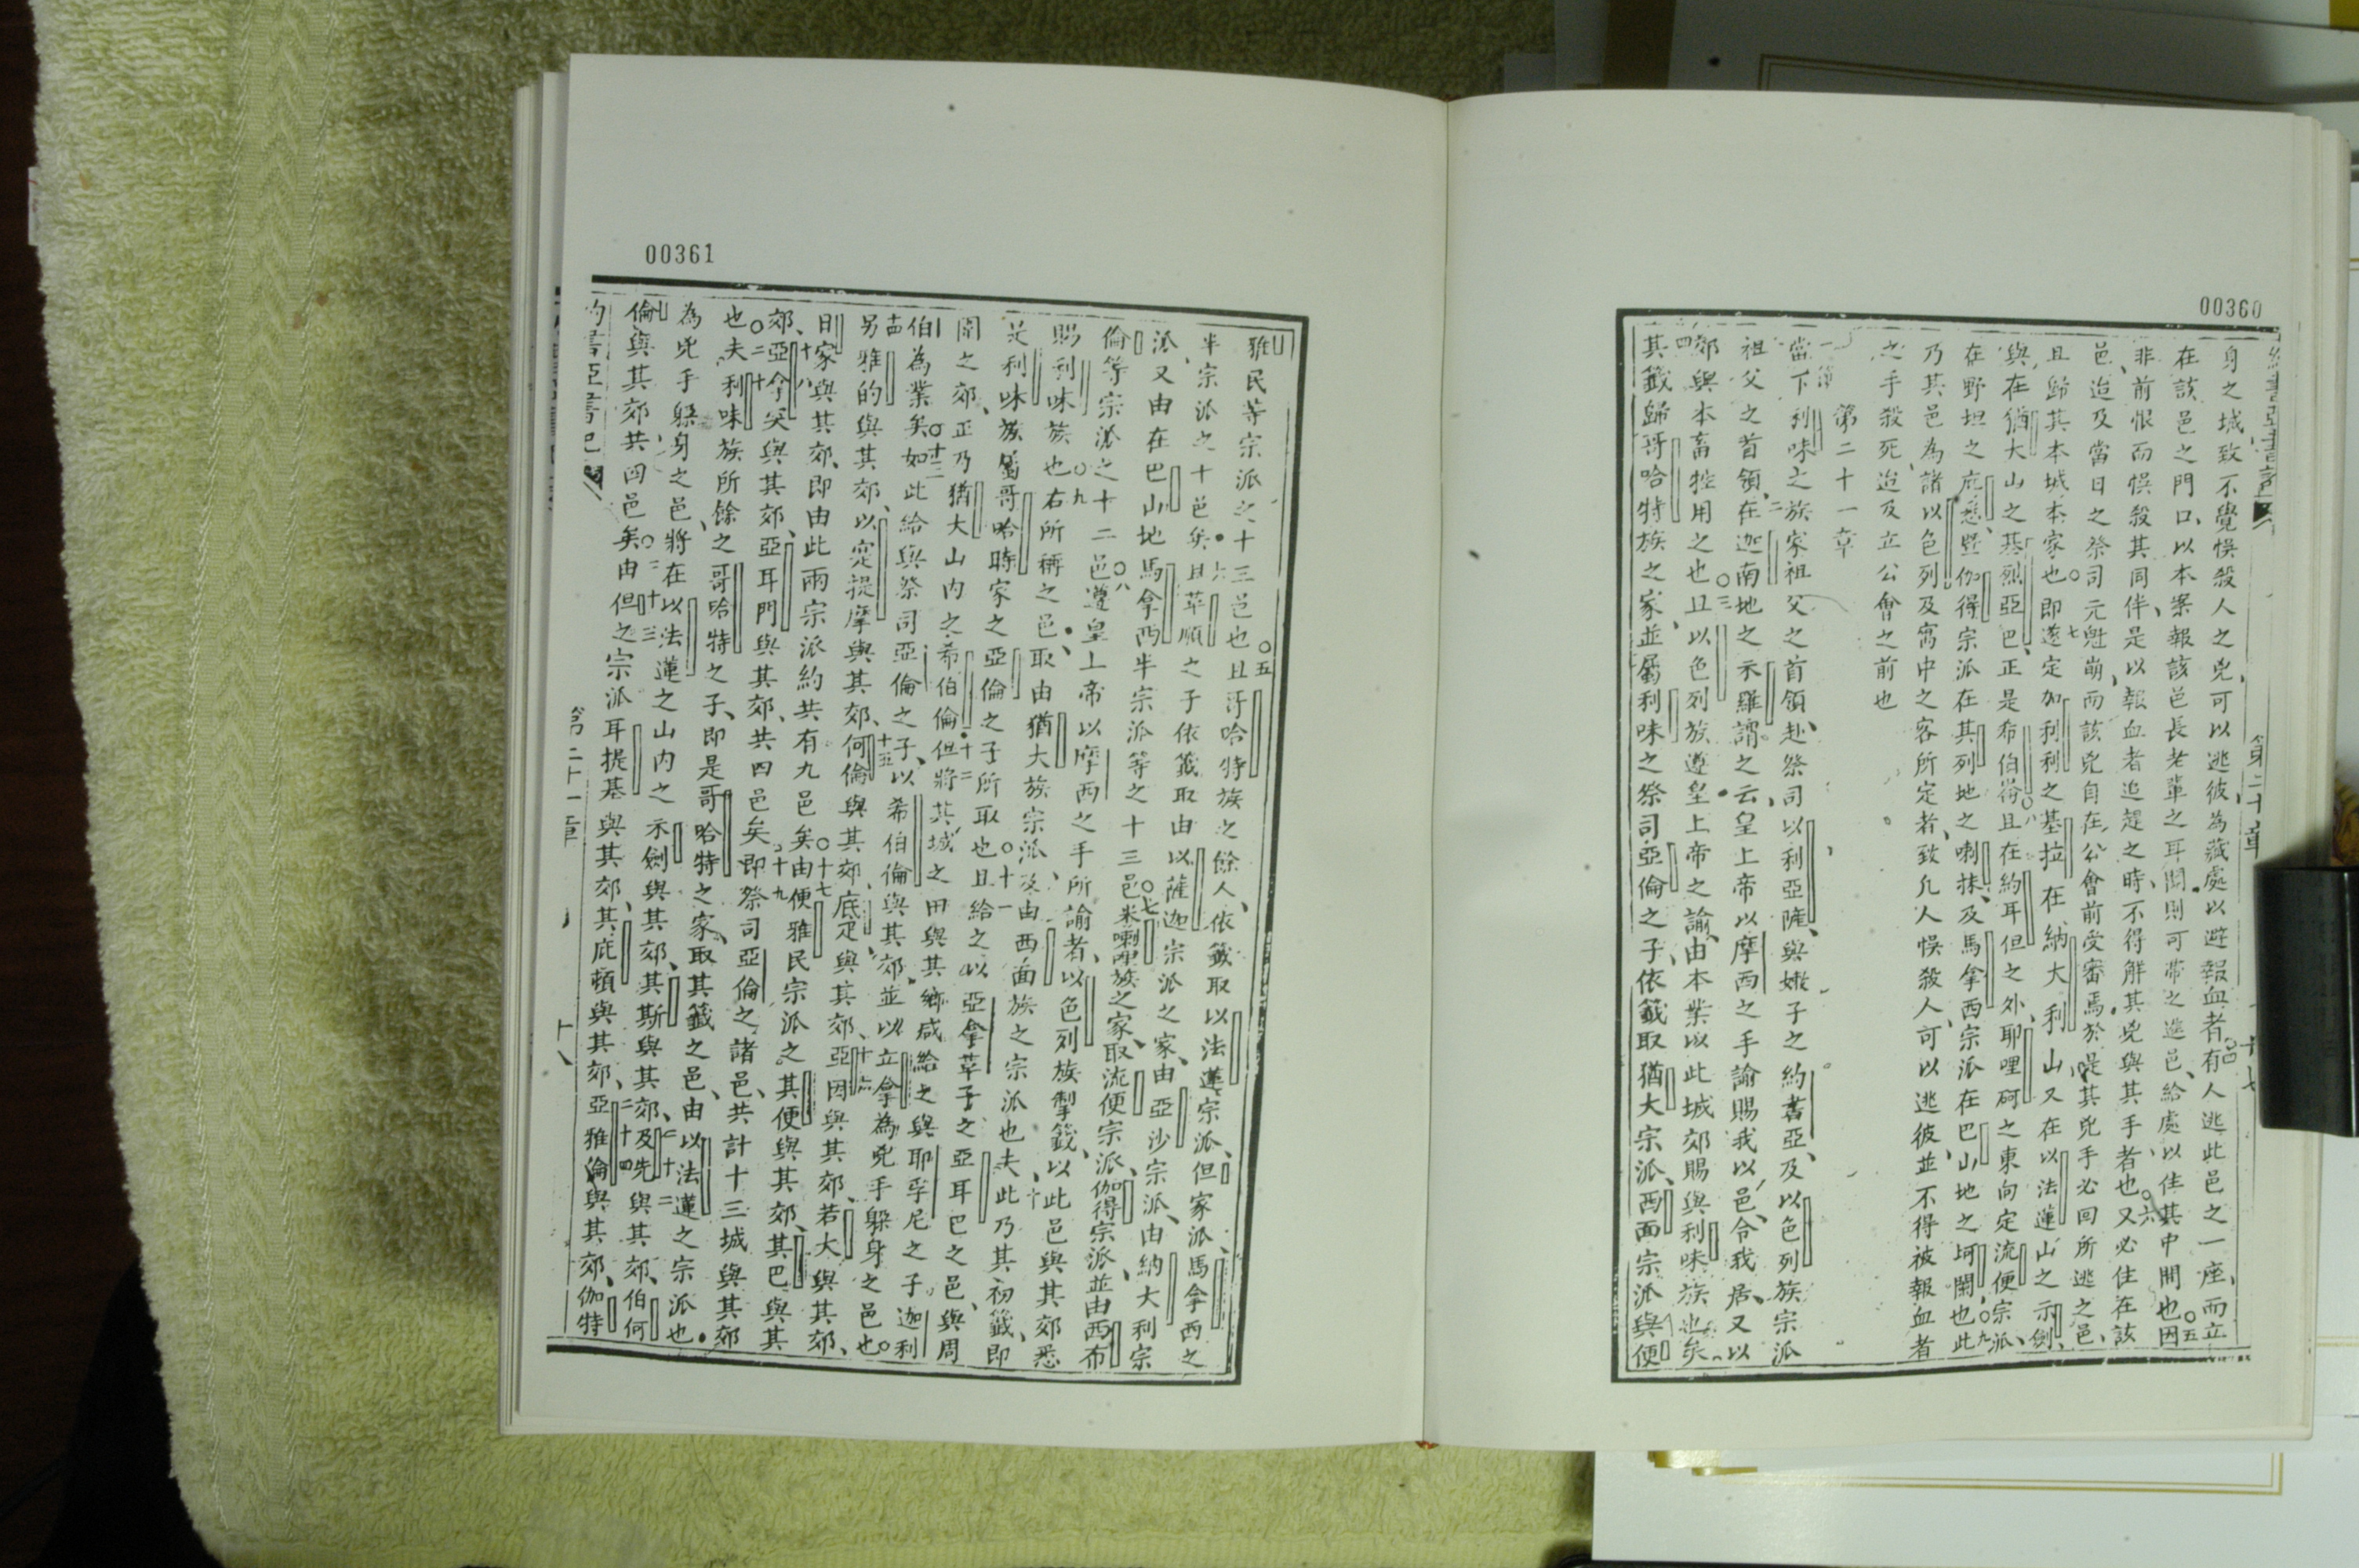 00360
身之城致不覺悞殺人之兇可以逃彼為藏處以避報血者有人逃此邑之一座而立
在該邑之門口以本案報該邑長老輩之耳聞則可帶之進邑給處以住其中開也因
非前恨而悞殺其同伴是以報血者追趕之時不得解其兇與其手者也又必住在該
邑迨及當日之祭司元魁崩而該兇自在公會前受審焉於是其兇手必回所逃之邑
且歸其本城本家也即遂定加利利之基拉在納大利山又在以法蓮山之示劍
與在猶大山之基烈亞巴正是希伯倫且在約耳但之外耶哩砢之東向定流便宗派
在野坦之庇悉暨伽得宗派在其列地之喇抹及馬拿西宗派在巴山地之坷闌也此
乃其邑為諸以色列及寓中之客所定者致凡人悞殺人可以逃彼並不得被報血者
之手殺死迨及立公會之前也
第二十一章
當下利味之族家祖父之首領赴祭司以利亞隆與嫩子之約書亞及以色列族宗派
祖父之首領在迦南地之示羅謂之云皇上帝以摩西之手諭賜我以邑合我居又以
郊與本畜牲用之也且以色列族遵皇上帝之諭由本業以此城郊賜與利味族也矣
其籤歸哥哈特族之家並屬利味之祭司亞倫之子依籤取猶大宗派西面宗派與便
00361
雅民等宗派之十三邑也且哥哈特族之餘人依籤取以法蓮宗派但家派馬拿西之
半宗派之十邑矣且革順之子依籤取由以薩迦宗派之家由亞沙宗派由納大利宗
派又由在巴山地馬拿西半宗派等之十三邑米喇哩族之家取流便宗派伽得宗派並由西布
倫等宗派之十二邑遵皇上帝以摩西之手所諭者以色列族掣籤以此邑與其郊悉
賜利味族也右所稱之邑取由猶大族宗派及由西面族之宗派也夫此乃其初籤即
是利味族屬哥哈時家之亞倫之子所取也且給之以亞拿革子之亞耳巴之邑與周
圍之郊正乃猶大山內之希伯倫但將其城之田與其鄉咸給之與耶孚尼之子迦利
伯為業矣如此給與祭司亞倫之子以希伯倫與其郊並以立拿為兇手躲身之邑也
另雅的與其郊以實提摩與其郊何倫與其郊底疋與其郊亞因與其郊若大與其郊
日家與其郊即由此兩宗派約共有九邑矣由便雅民宗派之其便與其郊其巴與其
郊亞拿突與其郊亞耳門與其郊共四邑矣即祭司亞倫之諸邑共計十三城與其郊
也夫利味族所餘之哥哈特之子即是哥哈特之家取其籤之邑由以法蓮之宗派也
為兇手躲身之邑將在以法蓮之山內之示劍與其郊其斯與其郊及先與其郊伯何
倫與其郊共四邑矣由但之宗派耳提基與其郊其庇頓與其郊亞雅倫與其郊伽特
第二十一章
十八